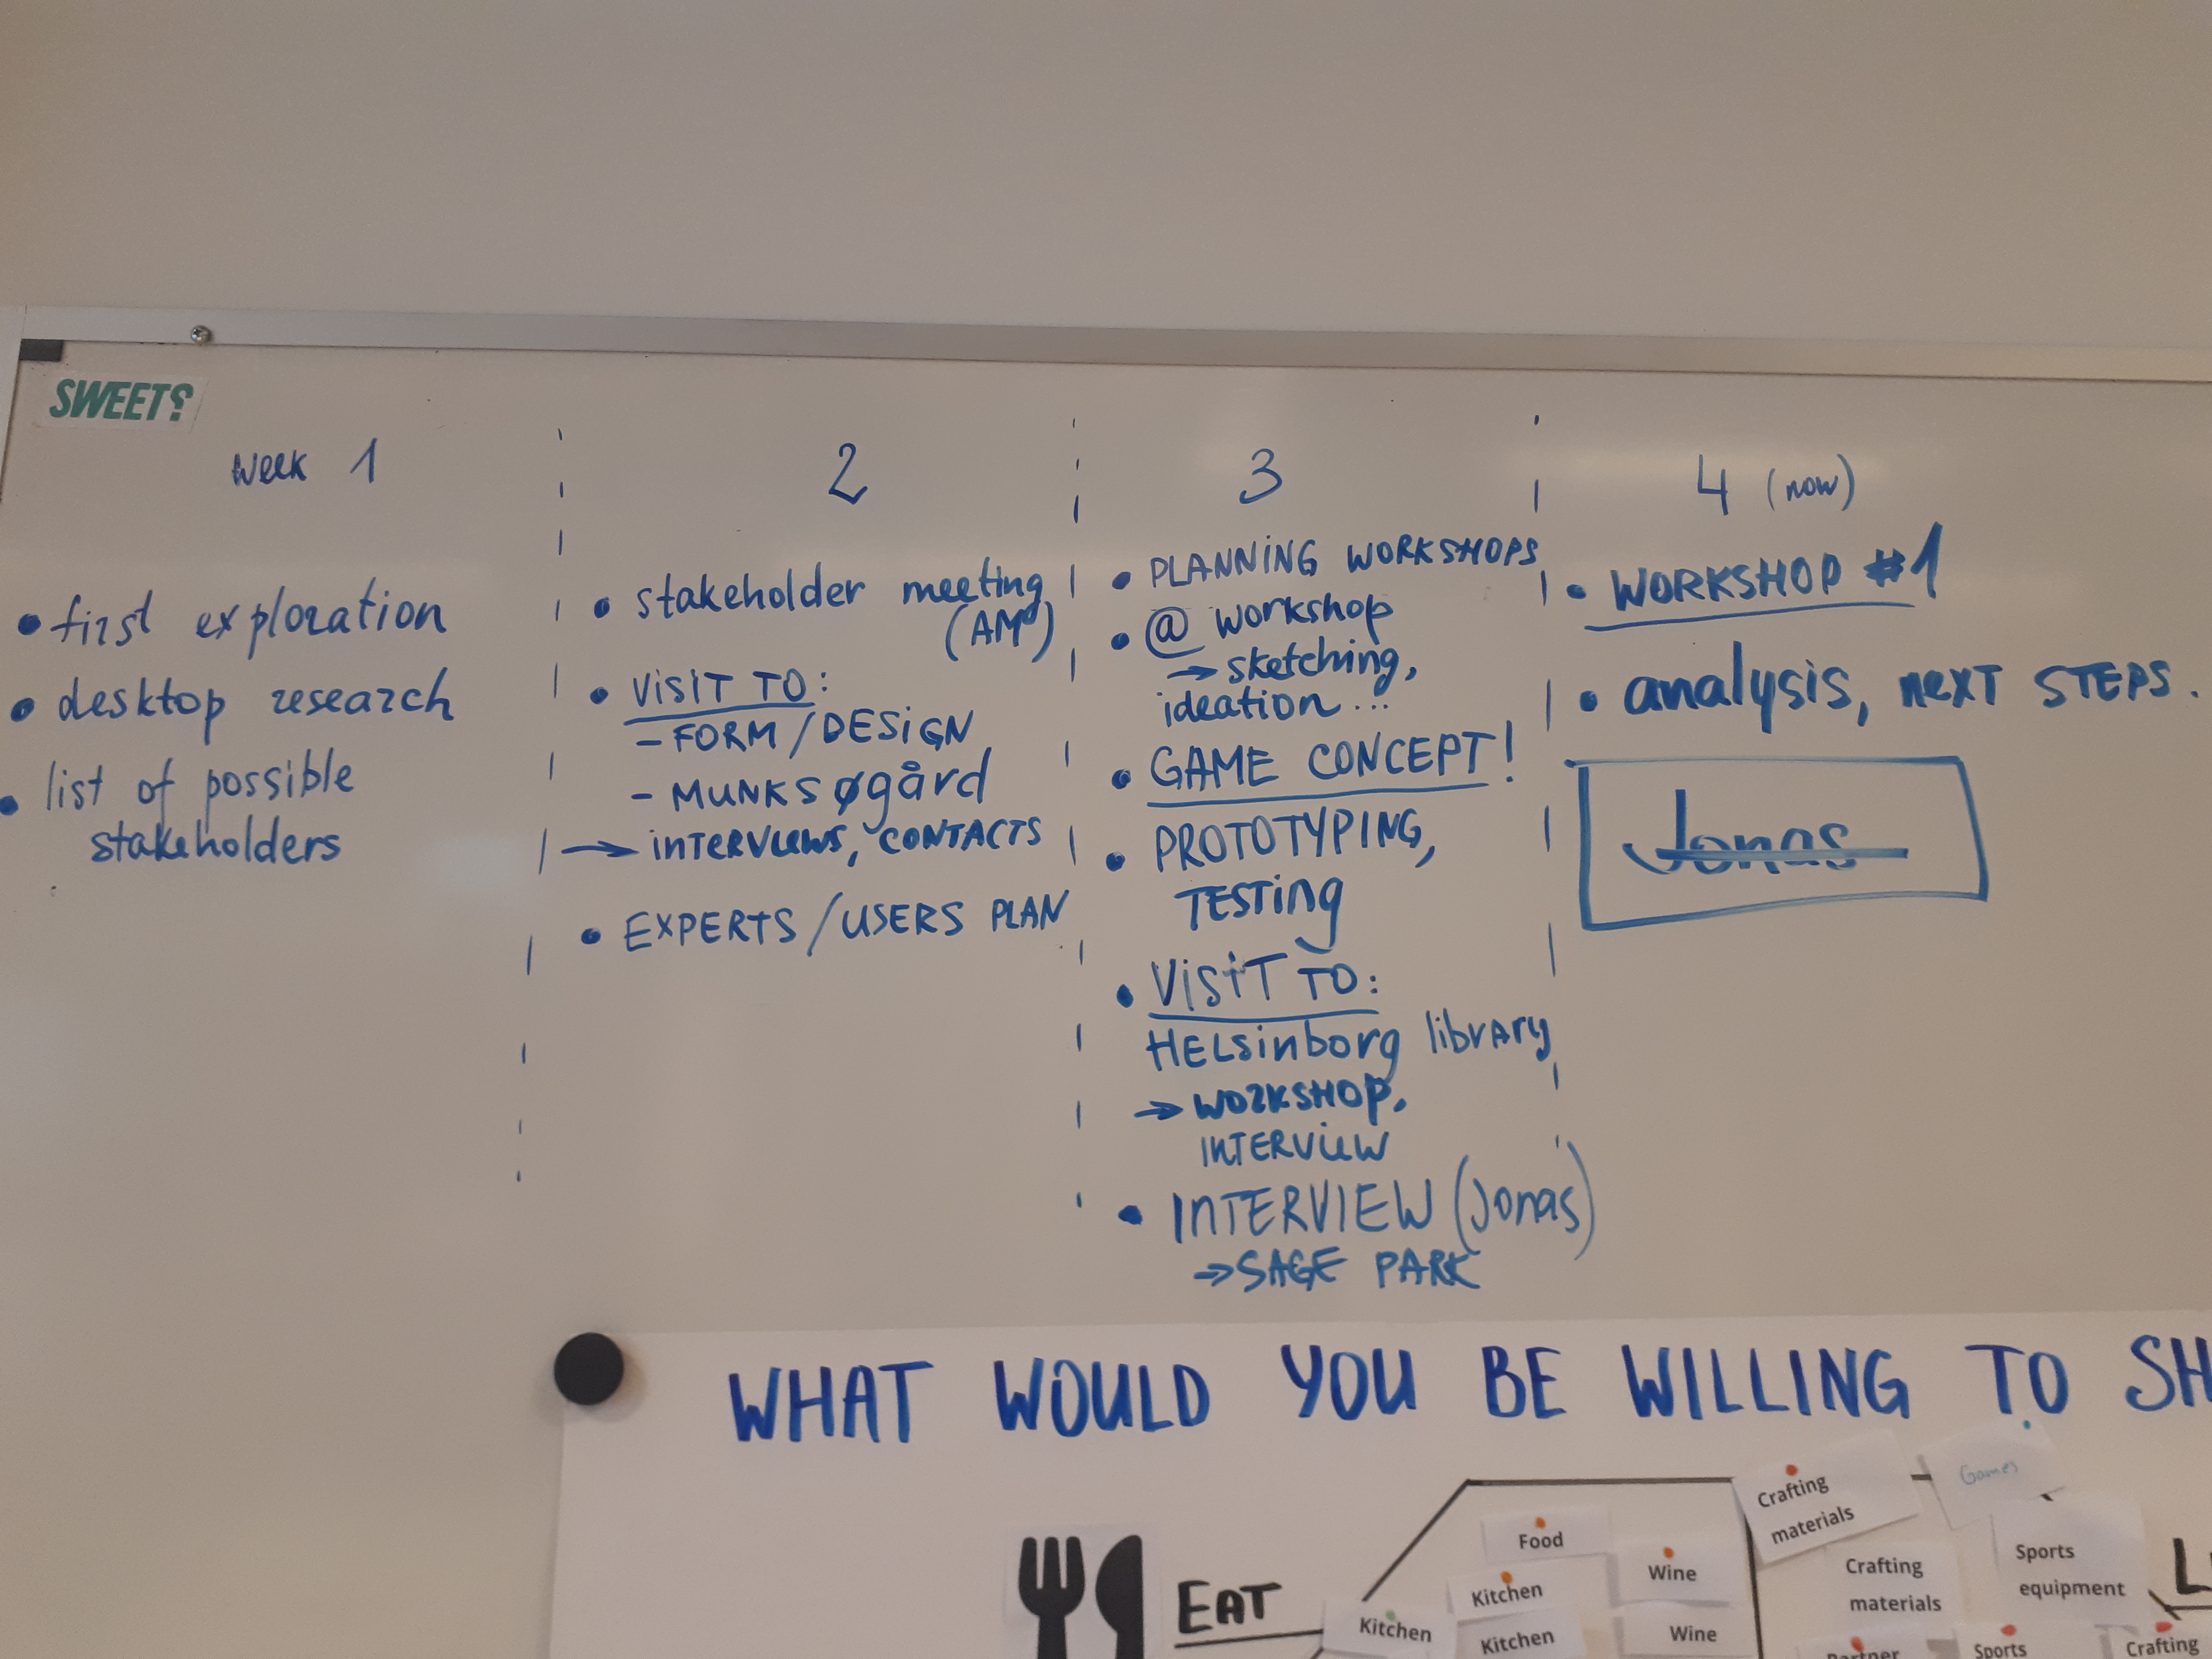 SWEETS
week 1
• first exploration
• desktop research
• list of possible
stakeholders
2
• stakeholder meeting
(AM)
• VISIT TO:
- FORM / DESIGN
- MUNKSøgård
→ INTERVIEWS, CONTACTS
• EXPERTS / USERS PLAN
3
• PLANNING WORKSHOPS
• @ workshop
→ sketching,
ideation...
• GAME CONCEPT!
• PROTOTYPING,
TESTING
• VISIT TO:
HELSINBORG library
→ WORKSHOP,
INTERVIEW
• INTERVIEW (Jonas)
→ SAGE PARK
4 (now)
• WORKSHOP #1
• analysis, next STEPS.
Jonas
WHAT WOULD YOU BE WILLING TO SH
EAT
Food
Kitchen
Kitchen
Kitchen
Wine
Wine
Crafting
materials
Games
Crafting
materials
Sports
equipment
L
Sports
Crafting